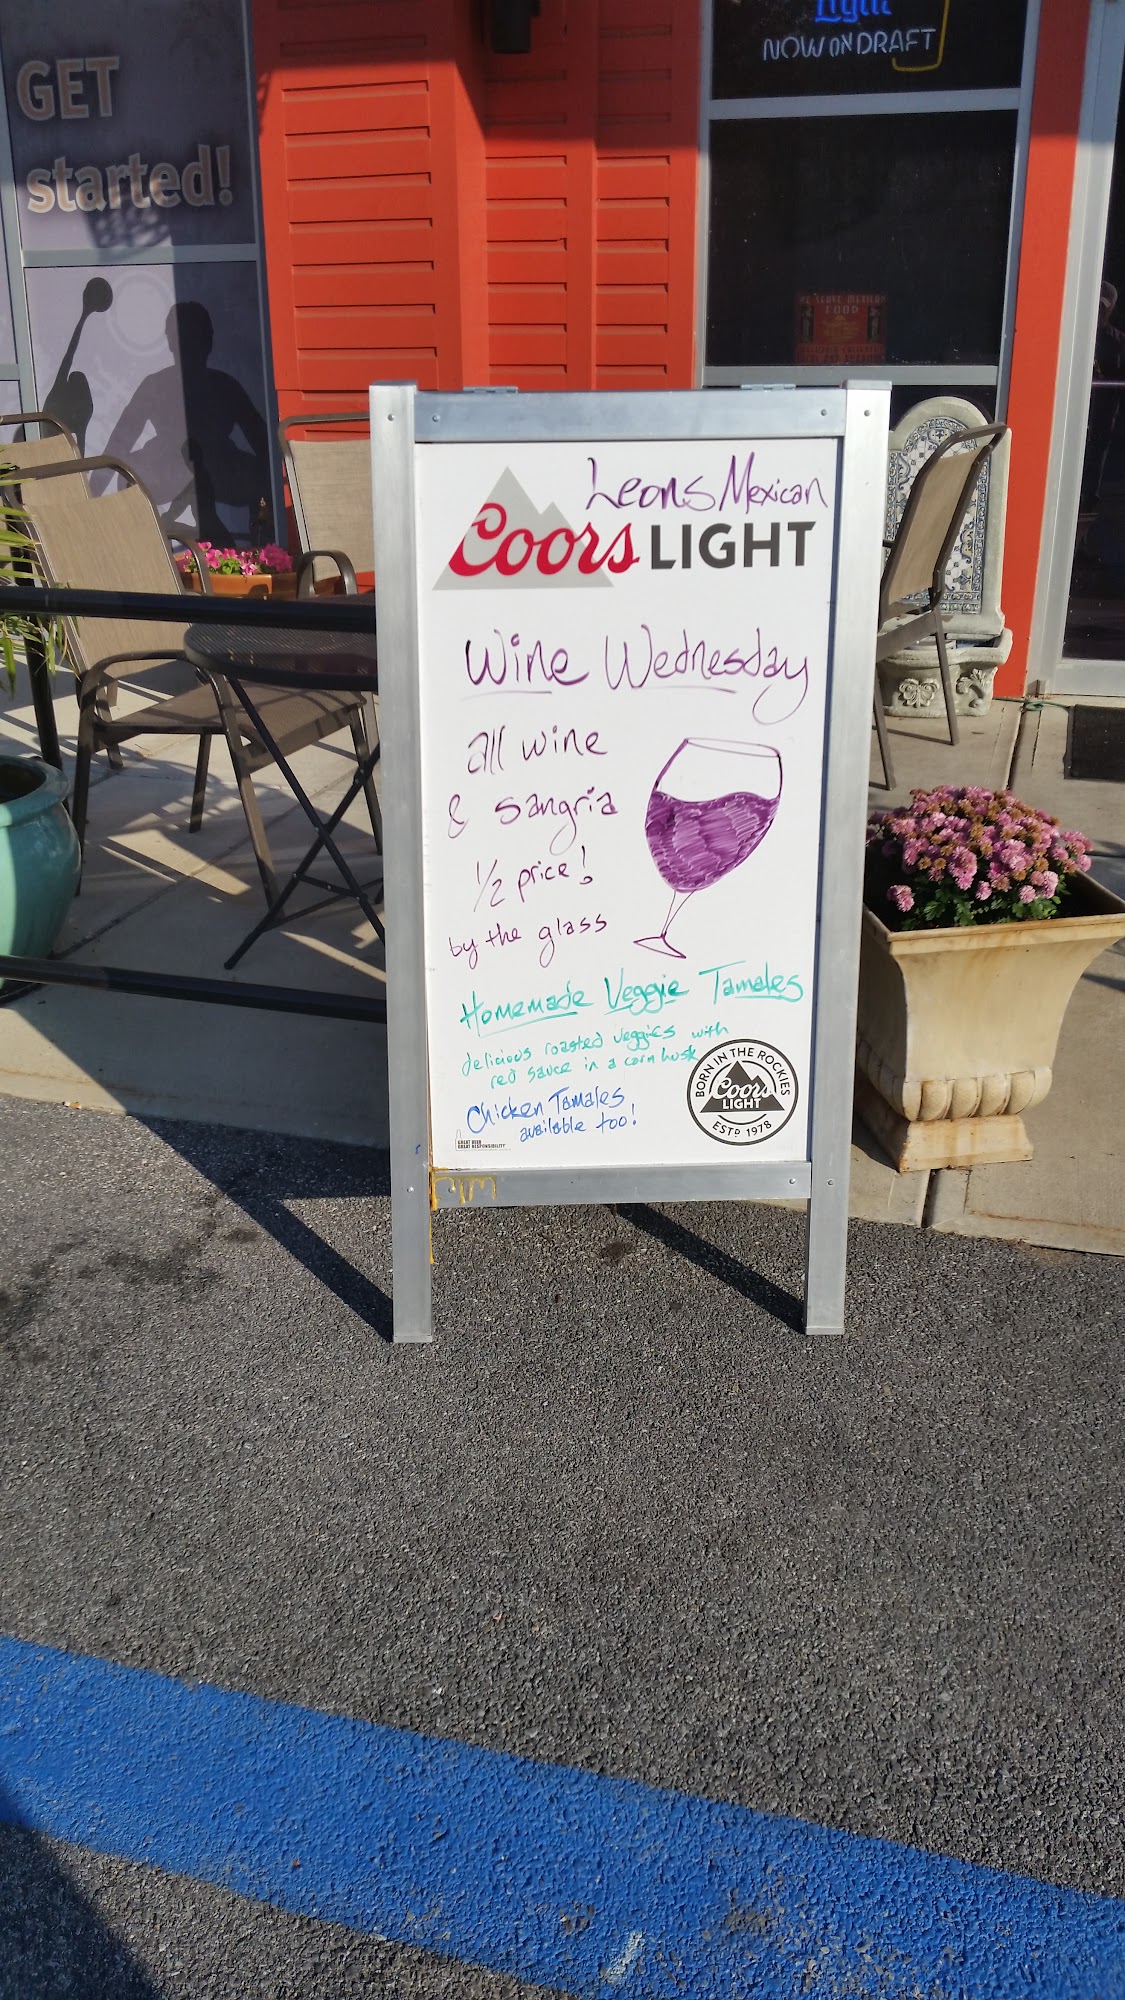 GET
started!
Light
NOW ON DRAFT
WE SERVE MEXICAN
FOOD
Leons Mexican
Coors LIGHT
Wine Wednesday
all wine
& sangria
1/2 price!
by the glass
Homemade Veggie Tamales
delicious roasted veggies with
red sauce in a corn husk
Chicken Tamales
available too!
BORN IN THE ROCKIES
Coors
LIGHT
ESTD 1978
GREAT BEER
GREAT RESPONSIBILITY